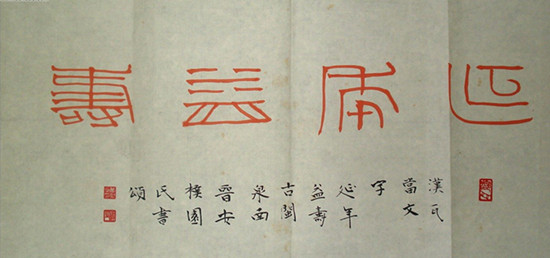 延年益壽
漢瓦
當文
字
延年
益壽
古閩
泉西
晉安
樸園
氏書
頌